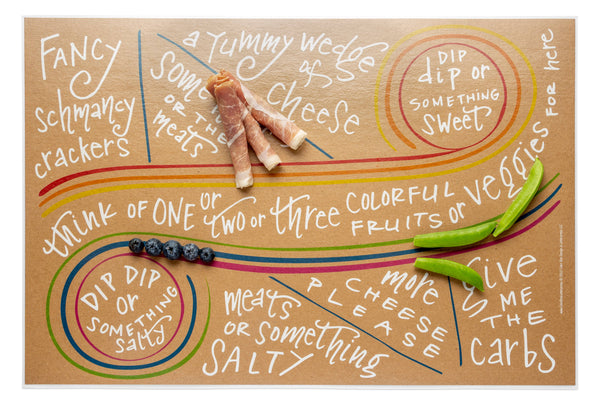 FANCY
schmancy
crackers
some
OR THE
meats
a yummy wedge
of
cheese
DIP
dip or
SOMETHING
sweet
think OF ONE or two or three COLORFUL
FRUITS or veggies FOR here
DIP DIP
or
SOMETHING
salty
meats
OR something
SALTY
more
CHEESE
PLEASE
Give
ME
THE
carbs